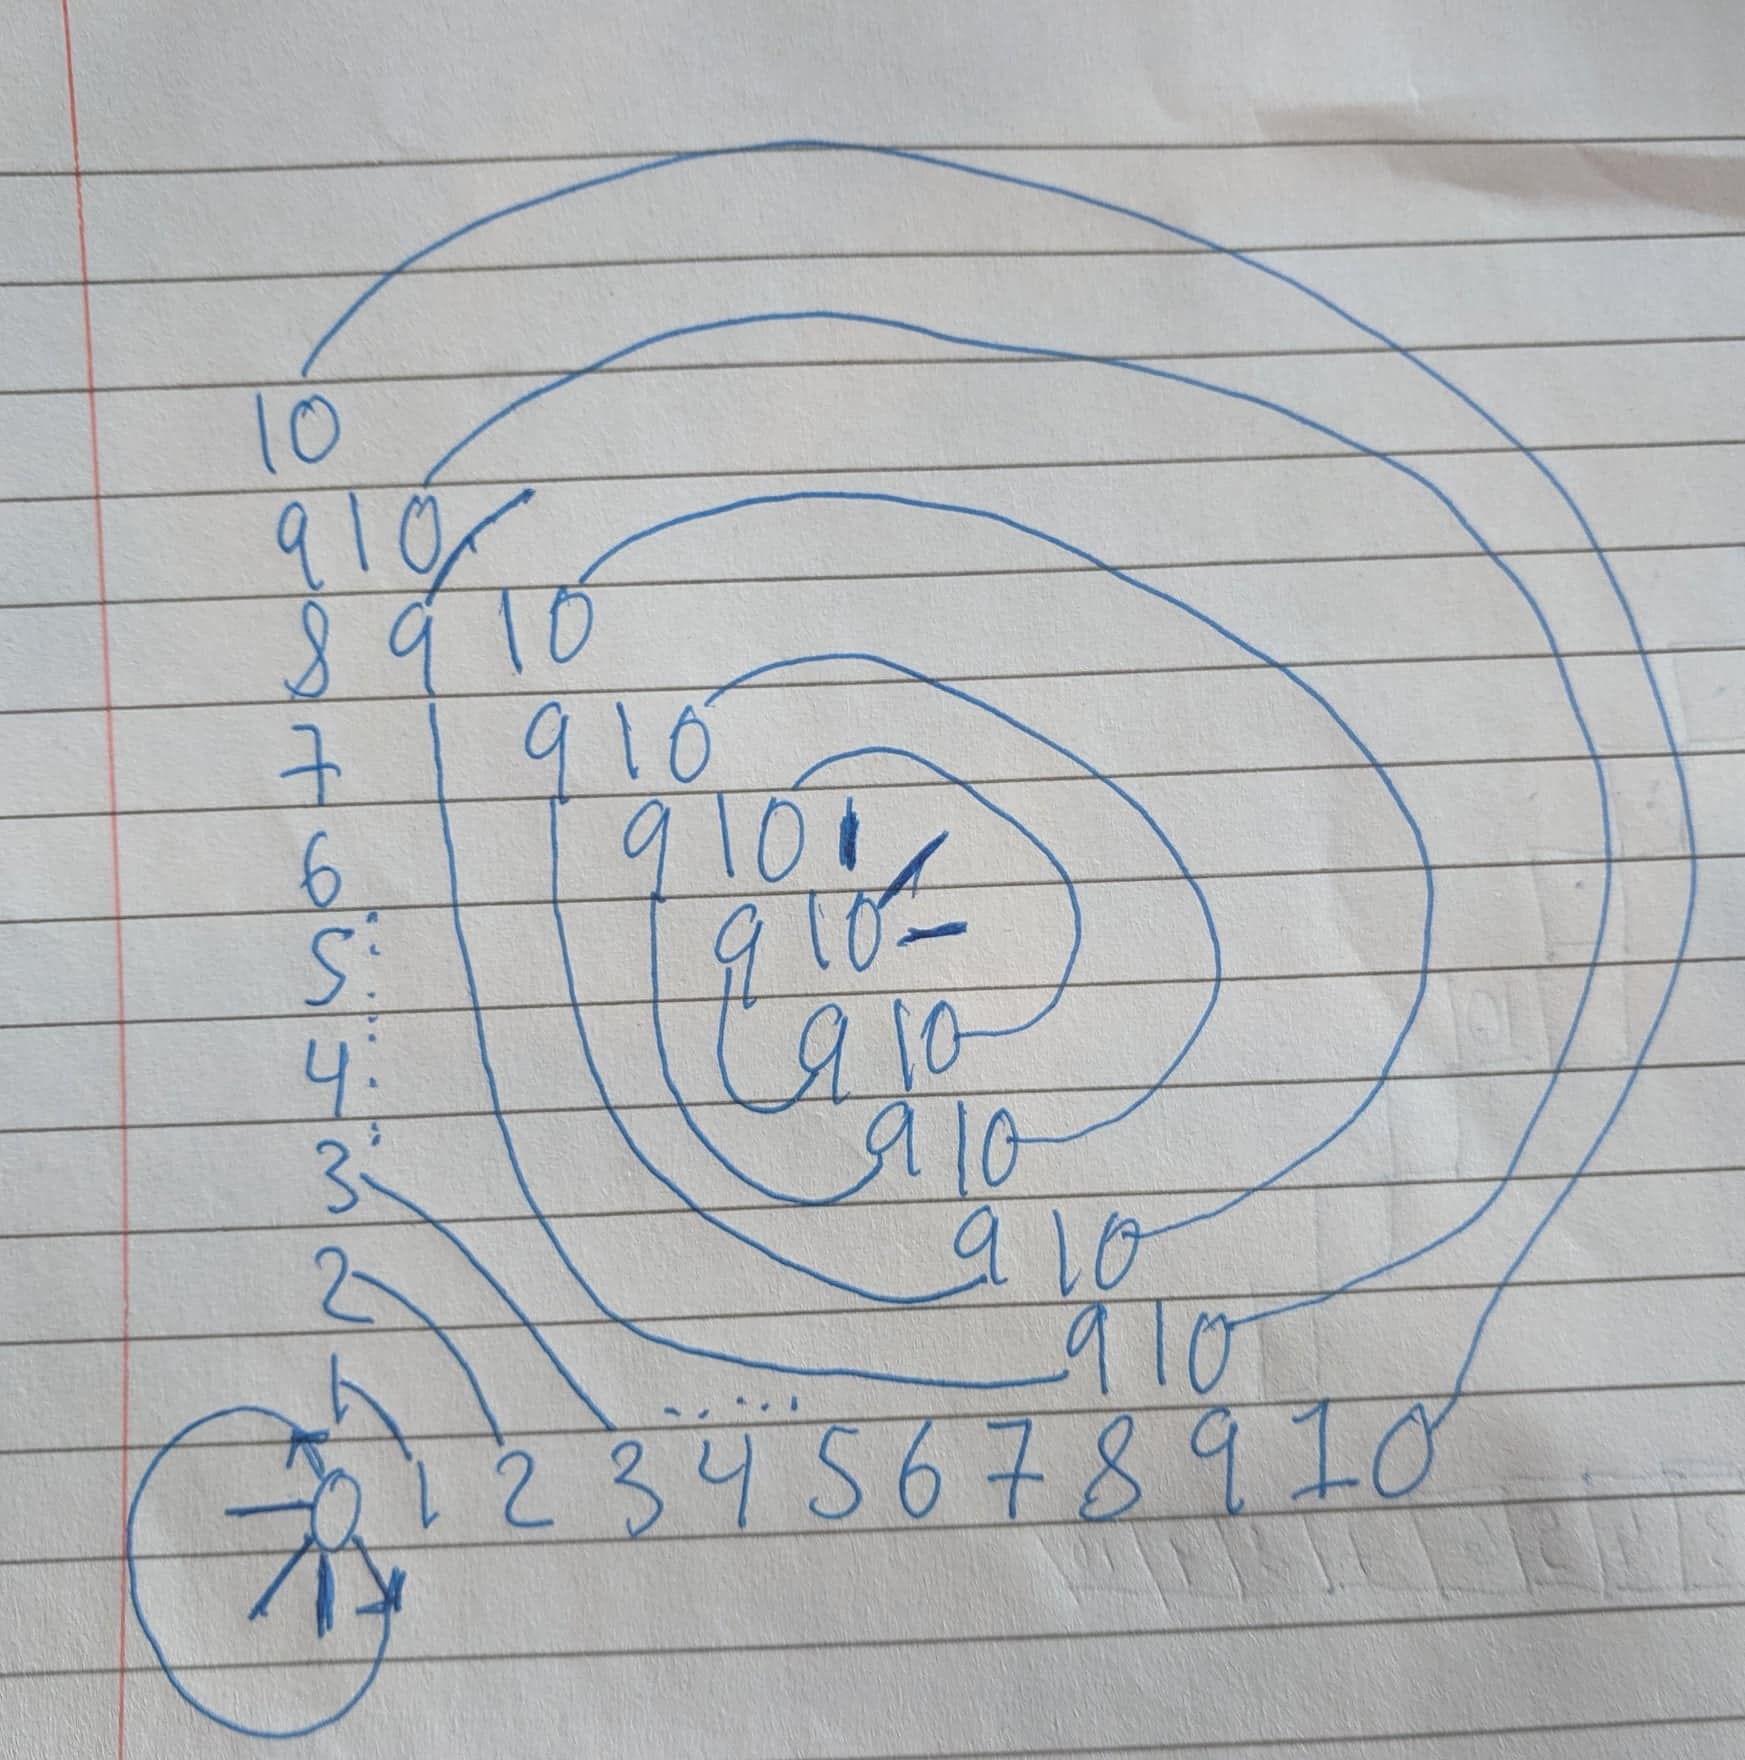 10
9 10
8 9 10
7 9 10
6 9 10
5 9 10
4 9 10
3 9 10
2 9 10
1 9 10
0 1 2 3 4 5 6 7 8 9 10